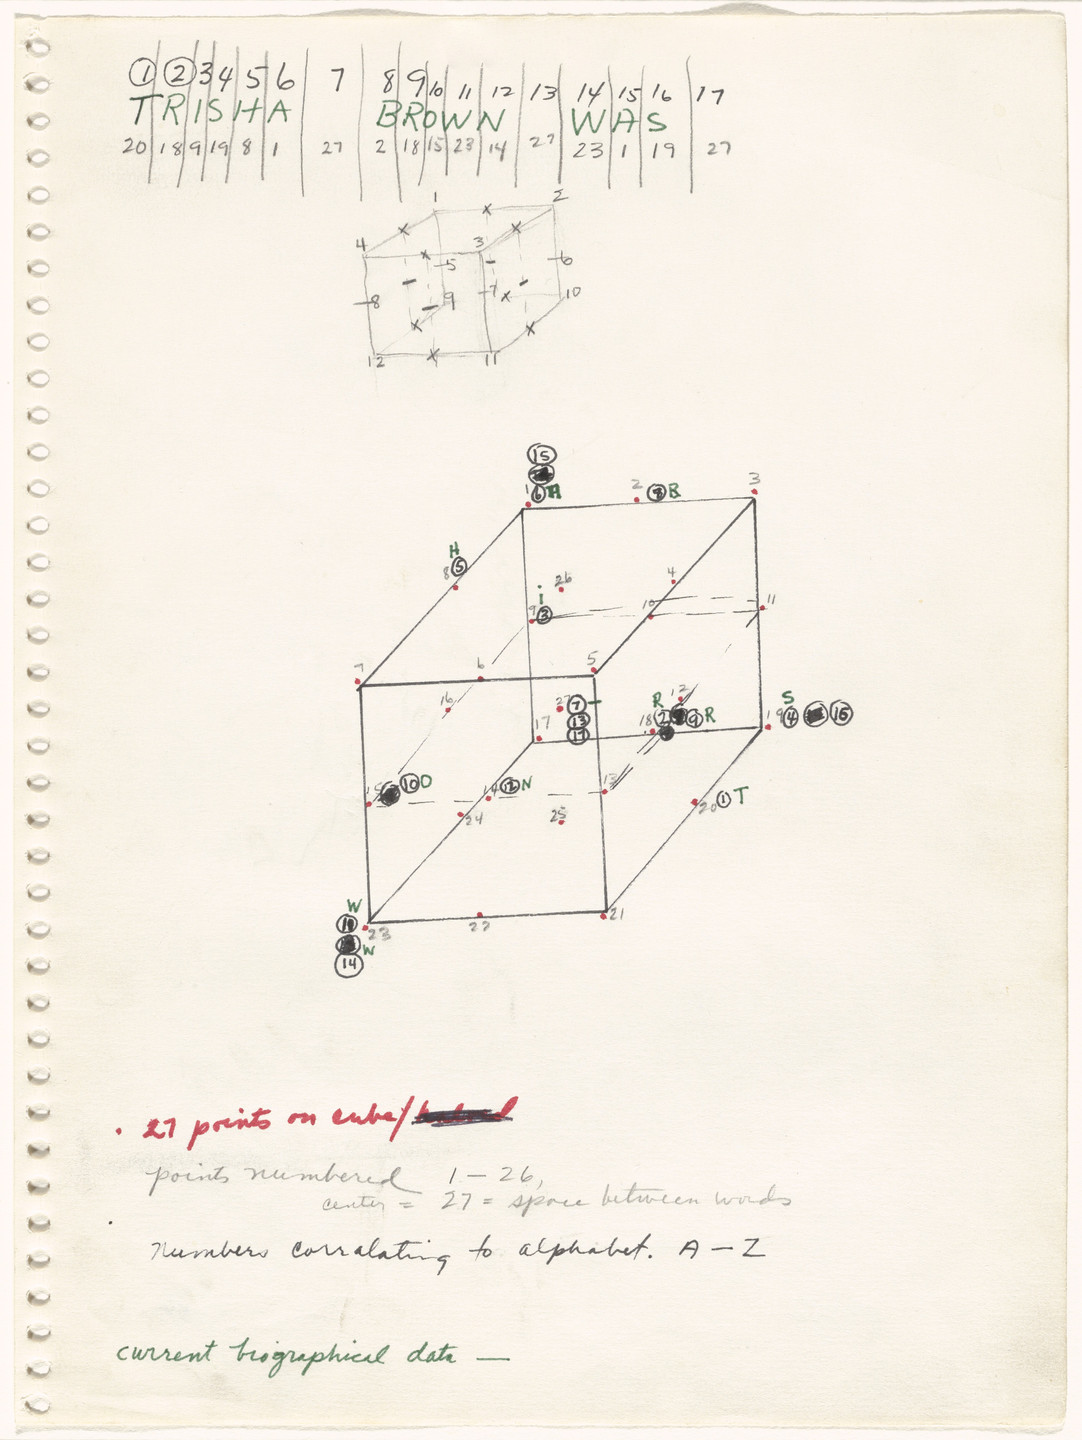 1 2 3 4 5 6 7 8 9 10 11 12 13 14 15 16 17
TRISHA BROWN WAS
20 18 9 19 8 1 27 2 18 15 23 14 27 23 1 19 27
1 2
4 3
5 6
8 9 7 10
12 11
15
1 6 A 2 8 B 3
H
8 5 26 4
i
9 3 10 11
7 6 5
16 27 7 12
R S
17 13 18 2 9 R 19 4 16
17
15 10 O 14 12 N 13
24 25 20 1 T
W
11 23 22 21
W
14
27 points on cube/
points numbered 1 – 26,
center = 27 = space between words
numbers corralating to alphabet. A – Z
current biographical data —